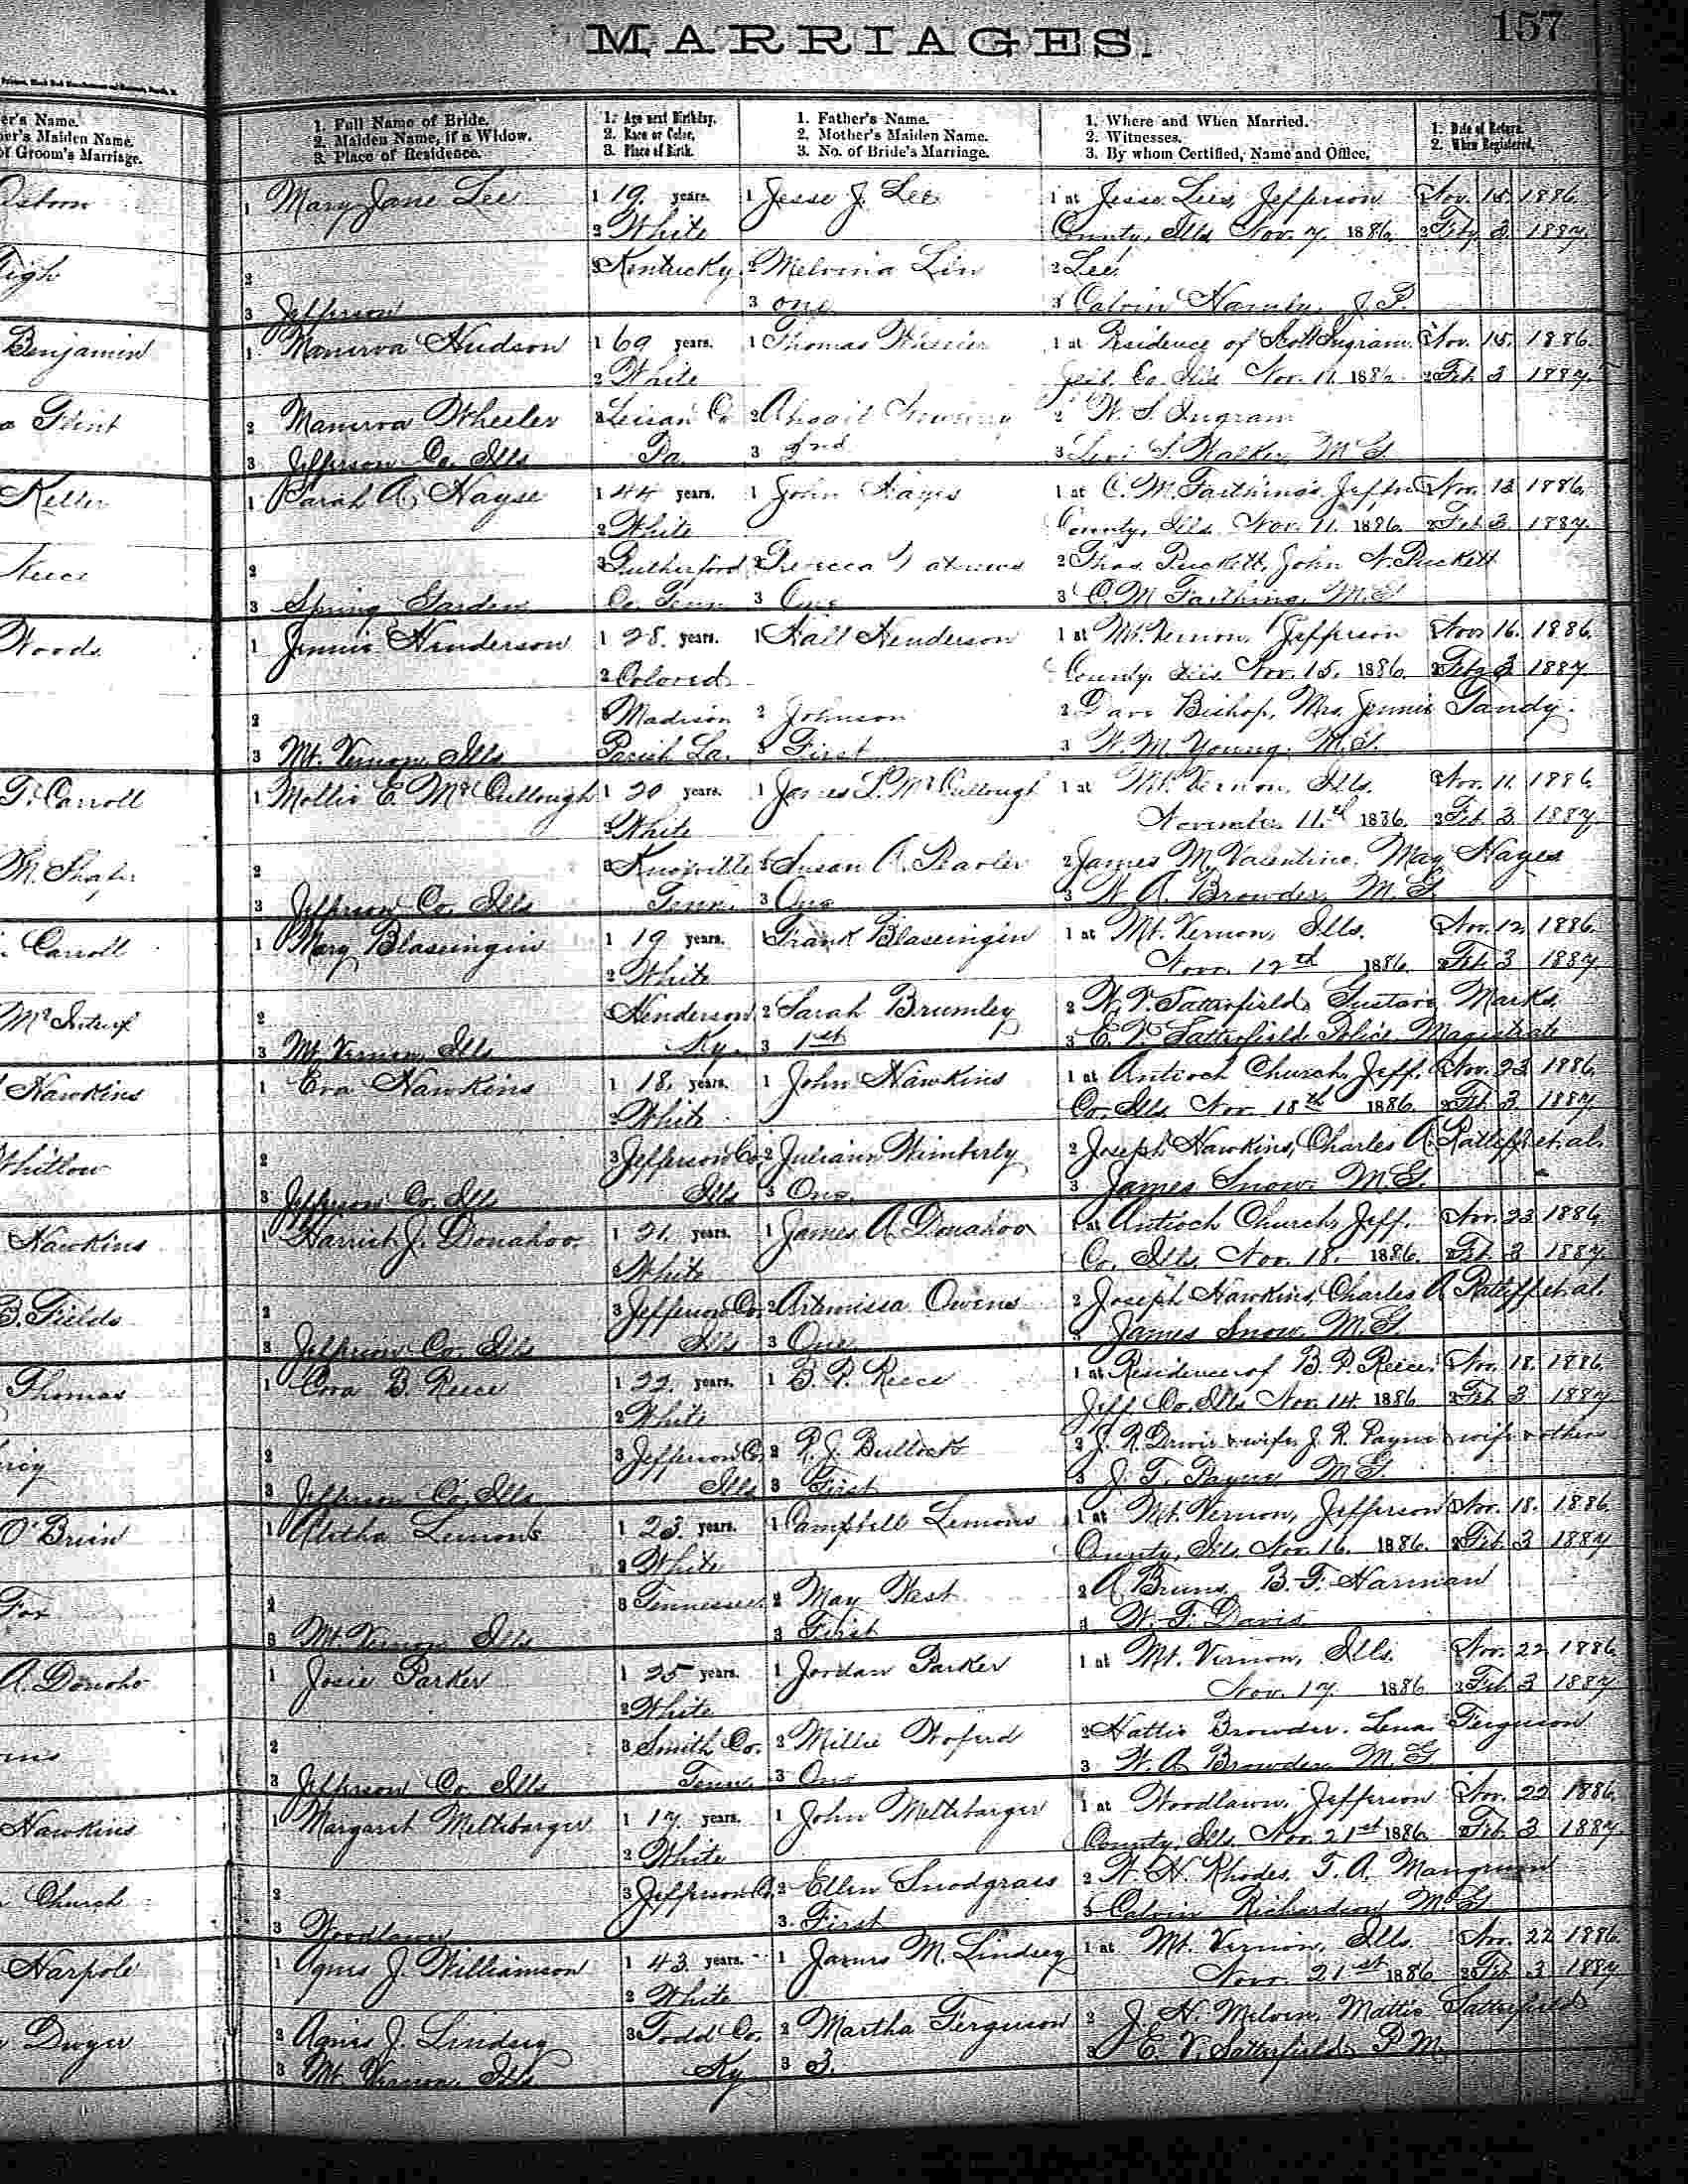 MARRIAGES.
157
er's Name.
er's Maiden Name.
of Groom's Marriage.
1. Full Name of Bride.
2. Maiden Name, if a Widow.
3. Place of Residence.
1. Age next Birthday.
2. Race or Color.
3. Place of Birth.
1. Father's Name.
2. Mother's Maiden Name.
3. No. of Bride's Marriage.
1. Where and When Married.
2. Witnesses.
3. By whom Certified, Name and Office.
1. Date of Return.
2. When Registered.
1 Mary Jane Lee 1 19 years. 1 Jesse J. Lee 1 at Jesse Lees, Jefferson Nov. 15. 1886.
2 White County, Ills Nov. 7. 1886. 2 Feby 3 1887.
2 3 Kentucky 2 Melvina Lin 2 Lee
3 Jefferson 3 one 3 Calvin J. P.
Benjamin 1 Manerva Hudson 1 69 years. 1 Thomas Wheeler 1 at Residence of Scott Ingram. Nov. 15. 1886.
2 White Co. Ills Nov. 11. 1886 2 Feb 3 1887.
Flint 2 Manerva Wheeler 3 Co 2 Abgail 2 W. S. Ingram
3 Jefferson Co. Ills Pa. 3 2nd 3 Levi S. Walker, M G
Keller 1 Sarah A. Hayse 1 44 years. 1 John Hayes 1 at C. M. Farthings, Nov. 13 1886.
2 White County, Ills. Nov. 11. 1886. 2 Feb 3 1887.
2 3 Rutherford 2 Rebecca 2 Thos. Puckett, John N. Puckett
3 Spring Garden Co. Tenn 3 One 3 C. M. Farthing, M. G.
Woods 1 Jennie Henderson 1 28. years. 1 Hall Henderson 1 at Mt. Vernon, Jefferson Nov 16. 1886.
2 Colored County, Ills. Nov. 15. 1886. 2 Feby 3 1887.
2 3 Madison 2 Johnson 2 Dave Bishop, Mrs. Jennie Tandy.
3 Mt. Vernon Ills Parish La. 3 First 3 W. M. Young, M. G.
T. Carroll 1 Mollie E. McCullough 1 20 years. 1 James McCullough 1 at Mt. Vernon, Ills. Nov. 11. 1886
2 White November 11th 1886. 2 Feb 3 1887.
2 3 Knoxville 2 Susan A. 2 James M. Valentine, May Hayes
3 Jefferson Co. Ills Tenn. 3 One 3 W. A. Browder, M. G.
Carroll 1 Mary Blaseingin 1 19 years. 1 Frank Blaseingin 1 at Mt. Vernon, Ills. Nov. 12 1886.
2 White Nov. 12th 1886. 2 Feb 3 1887.
2 Henderson 2 Sarah Brumley 2 Satterfield, Gustave Marks.
3 Mt. Vernon, Ills Ky. 3 1st 3 E. V. Satterfield Police Magistrate
Hawkins 1 Eva Hawkins 1 18. years. 1 John Hawkins 1 at Antioch Church, Jeff. Nov. 23 1886.
2 White Co. Ills Nov. 18th 1886. 2 Feb 3 1887.
Whitlow 2 3 Jefferson Co. 2 Juliann Wimberly 2 Joseph Hawkins, Charles A. Ratliff et. al.
3 Jefferson Co. Ills Ills 3 One. 3 James Snow, M. G.
Hawkins 1 Harriet J. Donahoo. 1 21. years. 1 James A. Donahoo 1 at Antioch Church, Jeff. Nov. 23 1886.
2 White Co. Ills. Nov. 18. 1886. 2 Feb. 3 1887.
B. Fields 2 3 Jefferson Co. 2 Artemissa Owens 2 Joseph Hawkins, Charles A Ratliff et. al.
3 Jefferson Co. Ills Ills 3 One. 3 James Snow, M. G.
Thomas 1 Cora B. Reece 1 22. years. 1 B. P. Reece 1 at Residence of B. P. Reece, Nov. 18. 1886.
2 White Jeff. Co. Ills Nov. 14. 1886 2 Feb 3 1887.
2 3 Jefferson Co. 2 R. J. Bullock 2 J. R. Davis & wife, J. R. Payne & wife & others
3 Jefferson Co. Ills Ills 3 First 3 J. T. Payne, M. G.
O'Brien 1 Alitha Lemons 1 23. years. 1 Campbell Lemons 1 at Mt. Vernon, Jefferson Nov. 18. 1886.
2 White County, Ills. Nov. 16. 1886. 2 Feb. 3 1887
Fox 2 3 Tennessee. 2 May West 2 A Bruns, B. F. Harman
3 Mt. Vernon Ills 3 First 3 W. F. Davis
A. Donoho 1 Josie Parker 1 25 years. 1 Jordan Parker 1 at Mt. Vernon, Ills. Nov. 22 1886.
2 White Nov. 17. 1886 2 Feb 3 1887
2 3 Smith Co. 2 Millie Woferd 2 Hattie Browder. Lena Ferguson
3 Jefferson Co. Ills Tenn. 3 One 3 W. A. Browder, M. G.
Hawkins 1 Margaret Meltebarger 1 17 years. 1 John Meltebarger 1 at Woodlawn, Jefferson Nov. 22 1886.
2 White County, Ills. Nov. 21st 1886 2 Feb. 3 1887
Church 2 3 Jefferson Co. 2 Ellen Snodgrass 2 W. H. Rhodes, T. A. Mangrum
3 Woodlawn 3. First 3 Calvin Richardson, M. G.
Harpole 1 Agnes J. Williamson 1 43 years. 1 James M. Lindsey 1 at Mt. Vernon, Ills. Nov. 22 1886
2 White Nov. 21st 1886 2 Feb 3 1887
Dwyer 2 Agnes J. Lindsey 3 Todd Co. 2 Martha Ferguson 2 J. H. Melvin, Mattie Satterfield
3 Mt. Vernon, Ills Ky 3 3. 3 E. V. Satterfield, P. M.